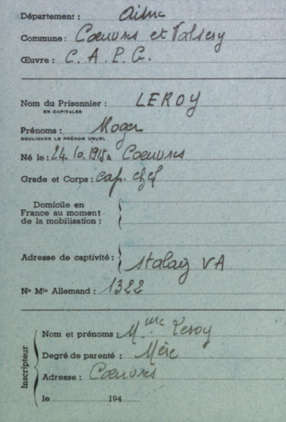 Département : Aisne
Commune : Cœuvres et Valsery
Œuvre : C. A. P. G.
Nom du Prisonnier : LEROY
EN CAPITALES
Prénoms : Roger
SOULIGNER LE PRÉNOM USUEL
Né le : 24.10.1915 à Cœuvres
Grade et Corps : Cap. chef
Domicile en
France au moment
de la mobilisation :
Adresse de captivité : Stalag VA
N° Mle Allemand : 1322
Inscripteur
Nom et prénoms : Mme Leroy
Degré de parenté : Mère
Adresse : Cœuvres
le 194